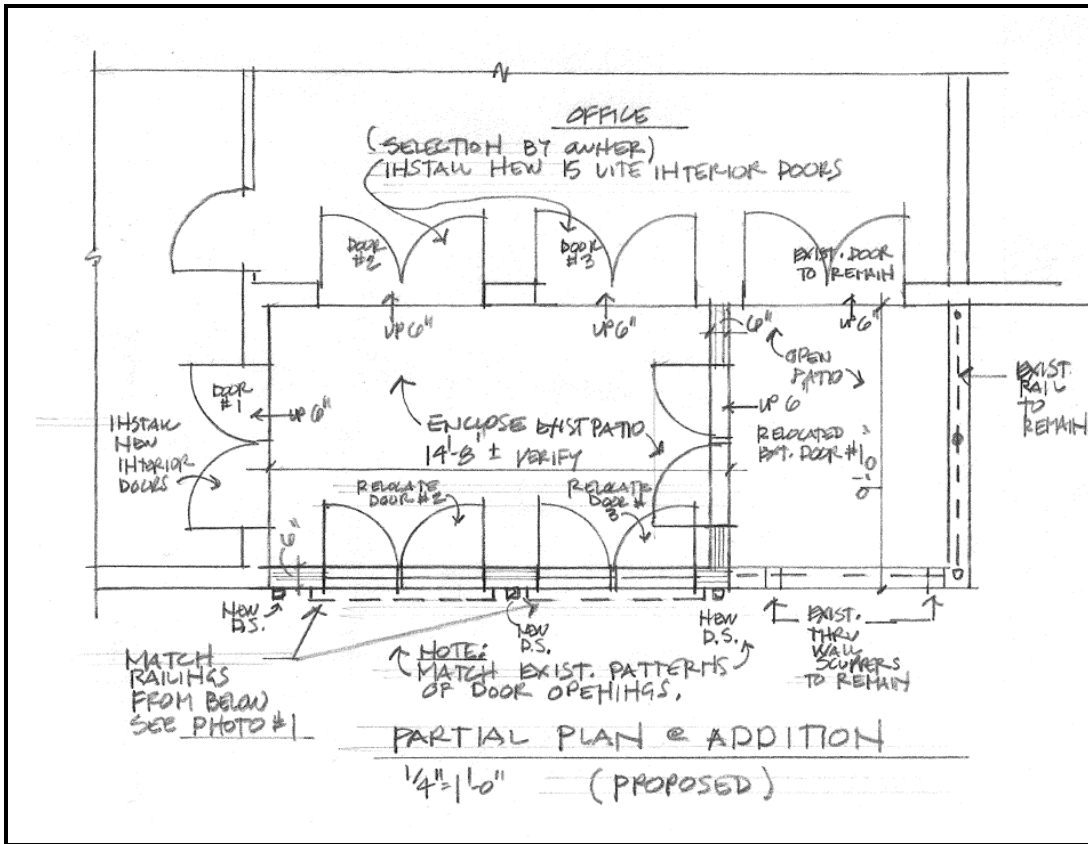 OFFICE
(SELECTION BY OWNER)
INSTALL NEW 15 LITE INTERIOR DOORS
DOOR
#2
DOOR
#3
EXIST. DOOR
TO REMAIN
UP 6"
UP 6"
UP 6"
6"
OPEN
PATIO
EXIST.
RAIL
TO
REMAIN
DOOR
#1
UP 6"
UP 6
INSTALL
NEW
INTERIOR
DOORS
ENCLOSE EXIST PATIO
14'-8" ± VERIFY
RELOCATED
EXT. DOOR #1
RELOCATE
DOOR #2
RELOCATE
DOOR #
3
6"
NEW
D.S.
NEW
D.S.
NEW
D.S.
EXIST.
THRU
WALL
SCUPPERS
TO REMAIN
MATCH
RAILINGS
FROM BELOW
SEE PHOTO #1
NOTE:
MATCH EXIST. PATTERNS
OF DOOR OPENINGS.
PARTIAL PLAN @ ADDITION
1/4"=1'-0" (PROPOSED)